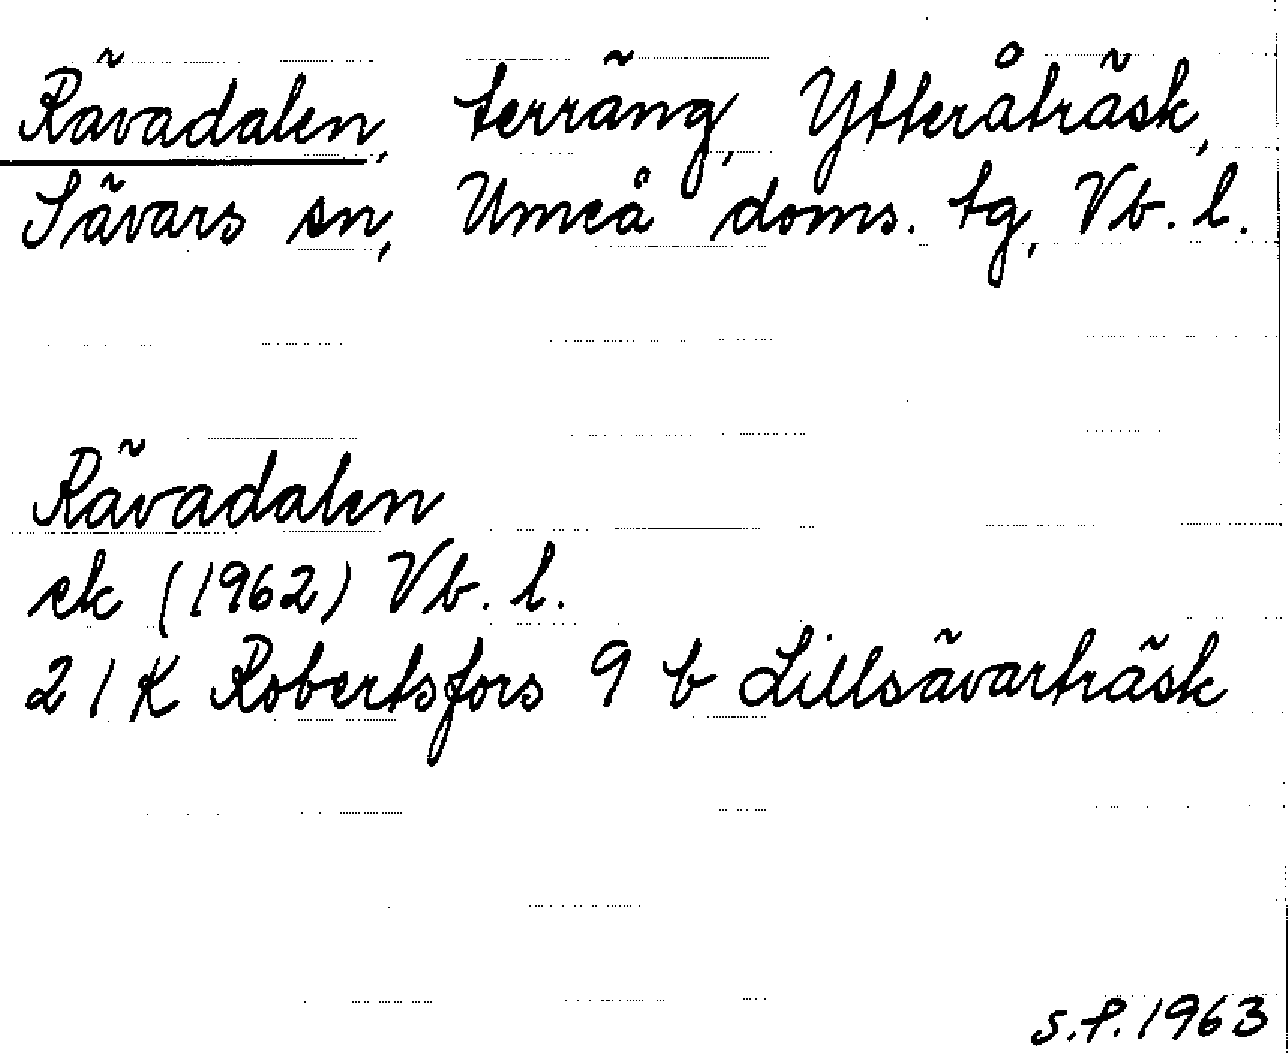 Rävadalen, terräng, Ytteråträsk,
Sävars sn, Umeå doms. tg, Vb. l.
Rävadalen
ek (1962) Vb. l.
21 K Robertsfors 9 b Lillsävarträsk
S.P. 1963